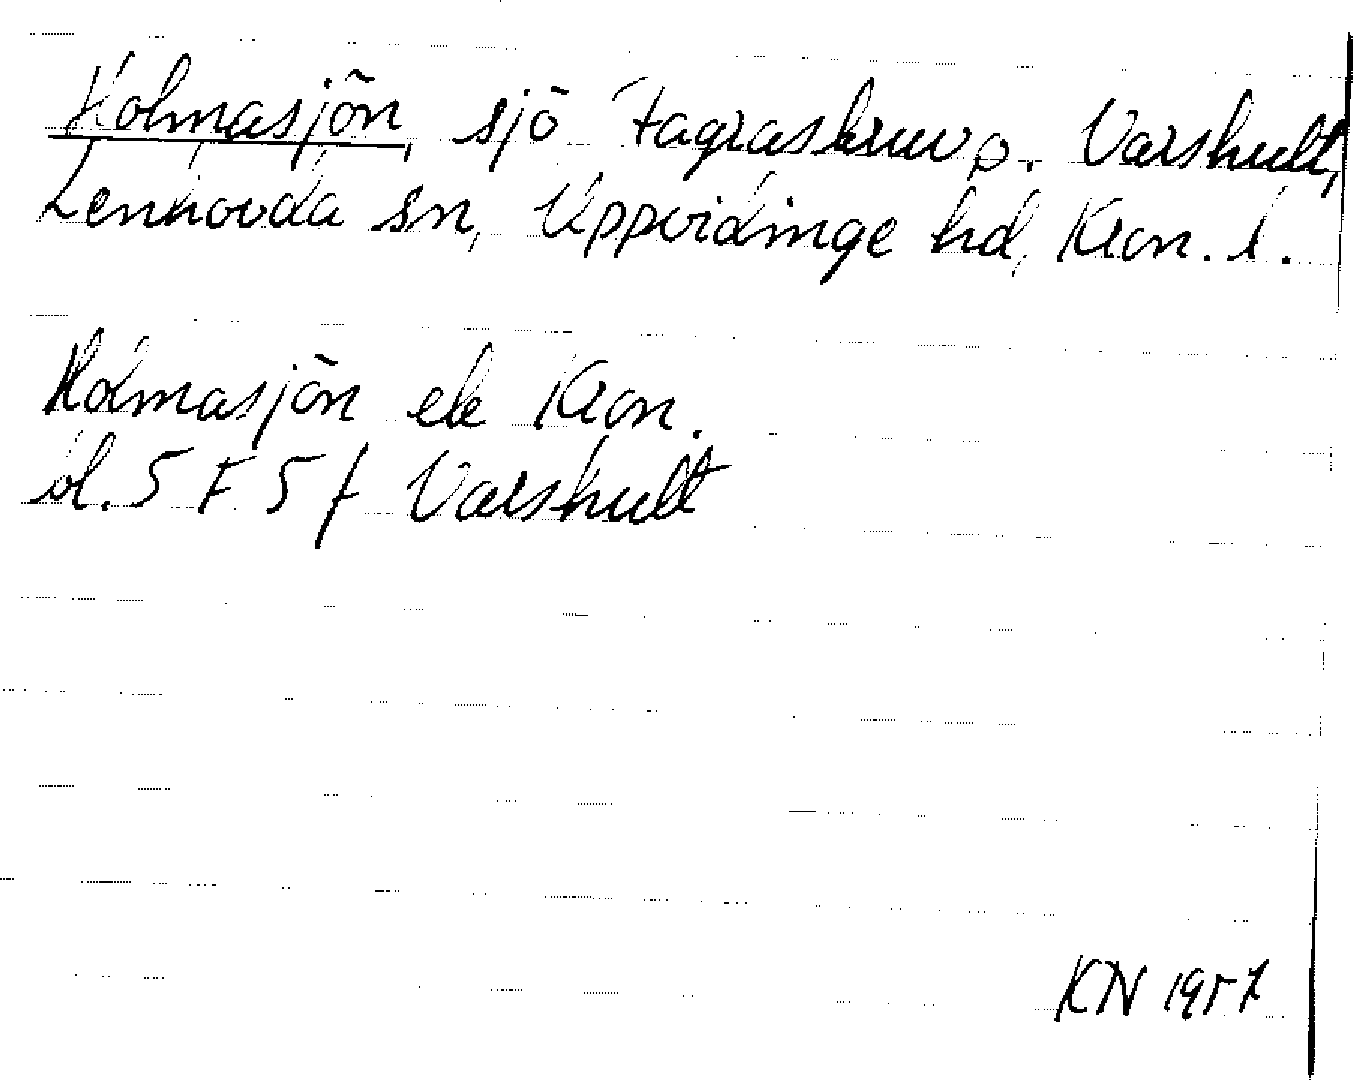 Holmasjön, sjö Fagraskruv o. Varshult,
Lenhovda sn, Uppvidinge hd, Kron. l.
Holmasjön ek Kron.
bl. 5 F 5 f Varshult
KN 1957